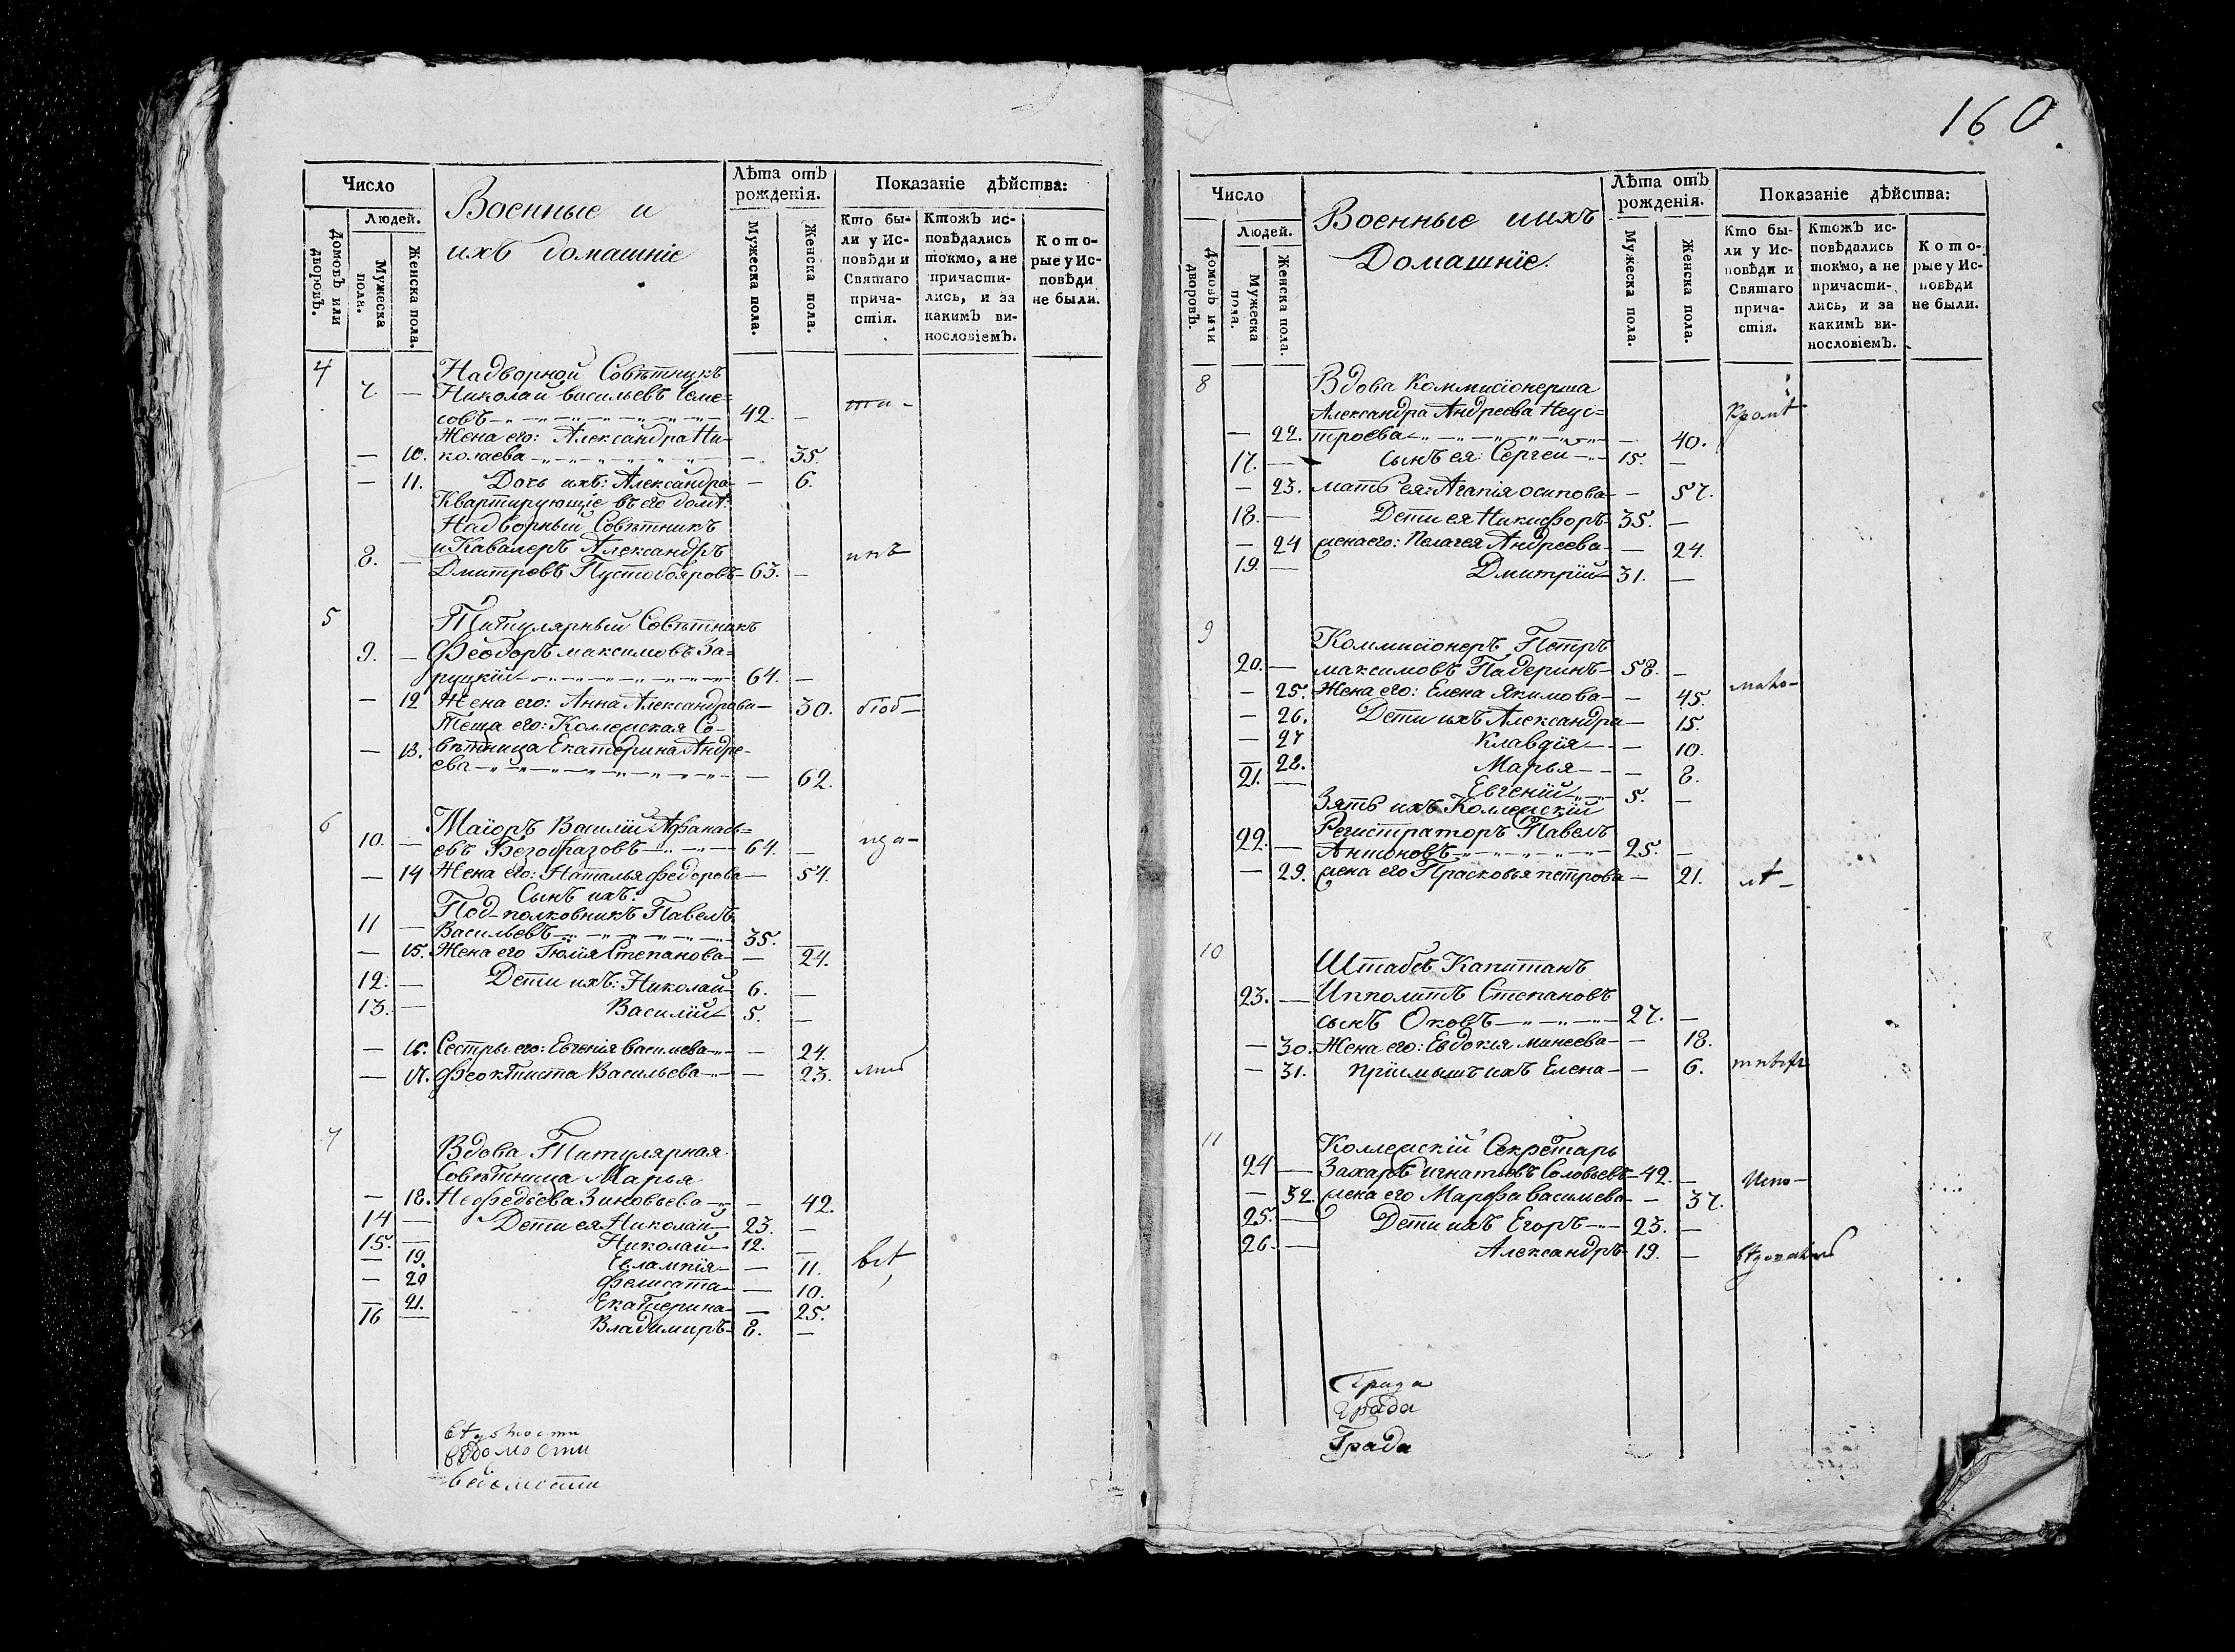 160
Число
Людей.
Домовъ или дворовъ.
Мужеска пола.
Женска пола.
Военные и
ихъ домашніе
Лѣта отъ
рожденія.
Мужеска пола.
Женска пола.
Показаніе дѣйства:
Кто бы-
ли у Ис-
повѣди и
Святаго
прича-
стія.
Ктожъ ис-
повѣдались
токмо, а не
причасти-
лись, и за
какимъ ви-
нословіемъ.
Кото-
рые у Ис-
повѣди
не были.
4 Надворной Совѣтникъ
7. — Николай васильевъ
совъ 42. —
Жена его: Александра Ни-
— 10. колаева — 35
— 11. Дочь ихъ: Александра — 6.
Квартирующіе въ его домѣ:
Надворный Совѣтникъ
и Кавалеръ Александръ
8. — Дмитревъ Пустобояровъ 63. —
5 Титулярный Совѣтникъ
9. — Феодоръ максимовъ За-
руцкій 64. —
— 12 Жена его: Анна Александрова — 30.
Теща его: Коллежская Со-
— 13. вѣтница Екатерина Андре-
ева — 62.
6 Маіоръ Василій Афанась-
10. — евъ Безобразовъ 64. —
— 14 Жена его: Наталья федорова — 54.
Сынъ ихъ:
Под-полковникъ Павелъ
11 — Васильевъ 35. —
— 15. Жена его Юлія Степанова — 24.
12. — Дети ихъ: Николай 6. —
13. — Василій 5. —
— 16. Сестры его: Евгенія васильева — 24.
— 17. Феоктиста Васильева — 23.
7 Вдова Титулярная
Совѣтница Марья
— 18. Нефедьева Зиновьева — 42.
14 — Дети ея Николай 23. —
15. — Николай 12. —
— 19. Евлампія — 11.
— 20 Фелисата — 10.
— 21. Екатерина — 25.
16 — Владимиръ 8. —
вѣдомости
ведомости
Число
Людей.
Домовъ или дворовъ.
Мужеска пола.
Женска пола.
Военные и ихъ
Домашніе.
Лѣта отъ
рожденія.
Мужеска пола.
Женска пола.
Показаніе дѣйства:
Кто бы-
ли у Ис-
повѣди и
Святаго
прича-
стія.
Ктожъ ис-
повѣдались
токмо, а не
причасти-
лись, и за
какимъ ви-
нословіемъ.
Кото-
рые у Ис-
повѣди
не были.
8 Вдова Коммисіонерша
Александра Андреева
— 22. — 40.
17. — Сынъ ея: Сергеи 15. —
— 23. мать ея: Агапія осипова — 57.
18. — Дети ея Никифоръ 35. —
— 24 жена его: Пелагея Андреева — 24.
19. — Дмитрій 31. —
9 Коммисіонеръ Петръ
20. — максимовъ Падеринъ 58. —
— 25. Жена его: Елена Якимова — 45.
— 26. Дети ихъ Александра — 15.
— 27 Клавдія — 10.
— 28. Марья — 8.
21. — Евгеній 5. —
Зять ихъ Коллежскій
Регистраторъ Павелъ
22. — Антоновъ 25. —
— 29. жена его Прасковья петрова — 21.
10 Штабсъ Капитанъ
23. — Ипполитъ Степановъ
сынъ Оковъ 27. —
— 30. Жена его: Евдокія минеева — 18.
— 31. пріимышъ ихъ Елена — 6.
11 Коллежскій Секретарь
24 — Захаръ игнатьевъ Соловьевъ 42. —
— 32. жена его Марфа васильева — 37.
25. — Дети ихъ Егоръ 23. —
26. — Александръ 19. —
Града
Града